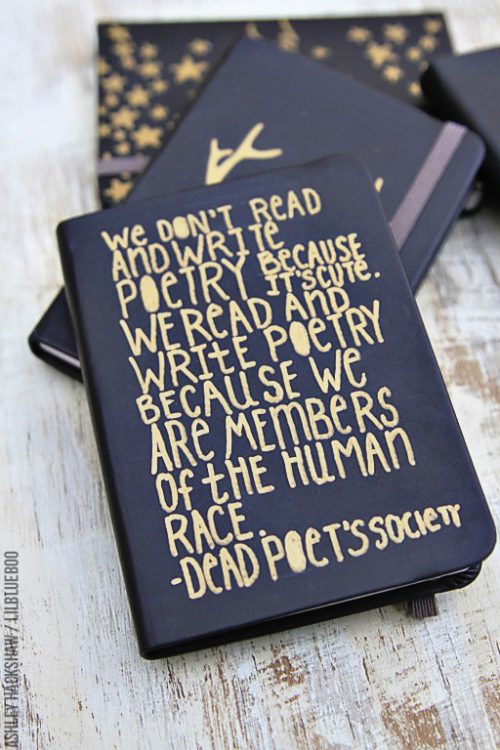 WE DON'T READ
AND WRITE
POETRY BECAUSE
IT'S CUTE.
WE READ AND
WRITE POETRY
BECAUSE WE
ARE MEMBERS
OF THE HUMAN
RACE.
-DEAD POET'S SOCIETY
ASHLEY HACKSHAW / LILBLUEBOO